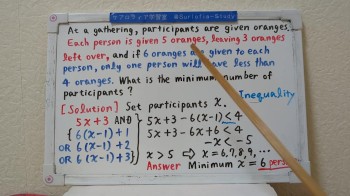 サプロティア学習室 @Surlofia-Study
At a gathering, participants are given oranges.
Each person is given 5 oranges, leaving 3 oranges
left over, and if 6 oranges are given to each
person, only one person will have less than
4 oranges. What is the minimum number of
participants?
Inequality
[Solution] Set participants x.
5x+3 AND
{ 6(x-1)+1
OR 6(x-1)+2
OR 6(x-1)+3 }
5x+3-6(x-1)<4
5x+3-6x+6<4
-x<-5
x>5 ⇨ x=6,7,8,9,...
Answer Minimum x=6 pers